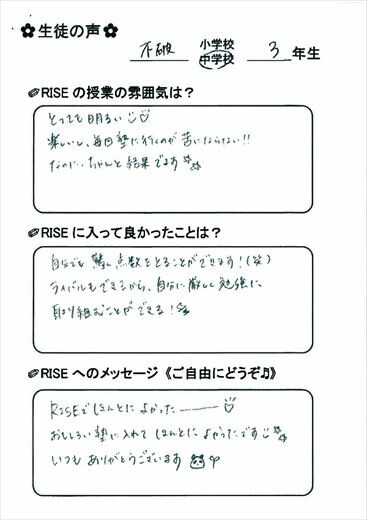 ✿生徒の声✿
不破 小学校 中学校 3 年生
RISEの授業の雰囲気は？
とっても明るい
楽しいし、毎日塾に行くのが苦にならない!!
なのに、ちゃんと結果でます
RISEに入って良かったことは？
自分でも驚く点数をとることができます!(笑)
ライバルもできるから、自分に厳しく勉強に
取り組むことができる!
RISEへのメッセージ《ご自由にどうぞ♫》
RISEでほんとによかった―――
おもしろい塾に入れてほんとによかったです
いつもありがとうございます